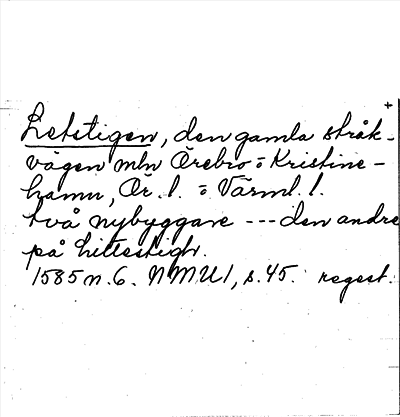 +
Letstigen, den gamla stråk-
vägen mln Örebro o Kristine-
hamn, Ör. l. o Värml. l.
två nybyggare --- den andre
på Littestigh.
1585 n. 6. NMU I, s. 45. regest.